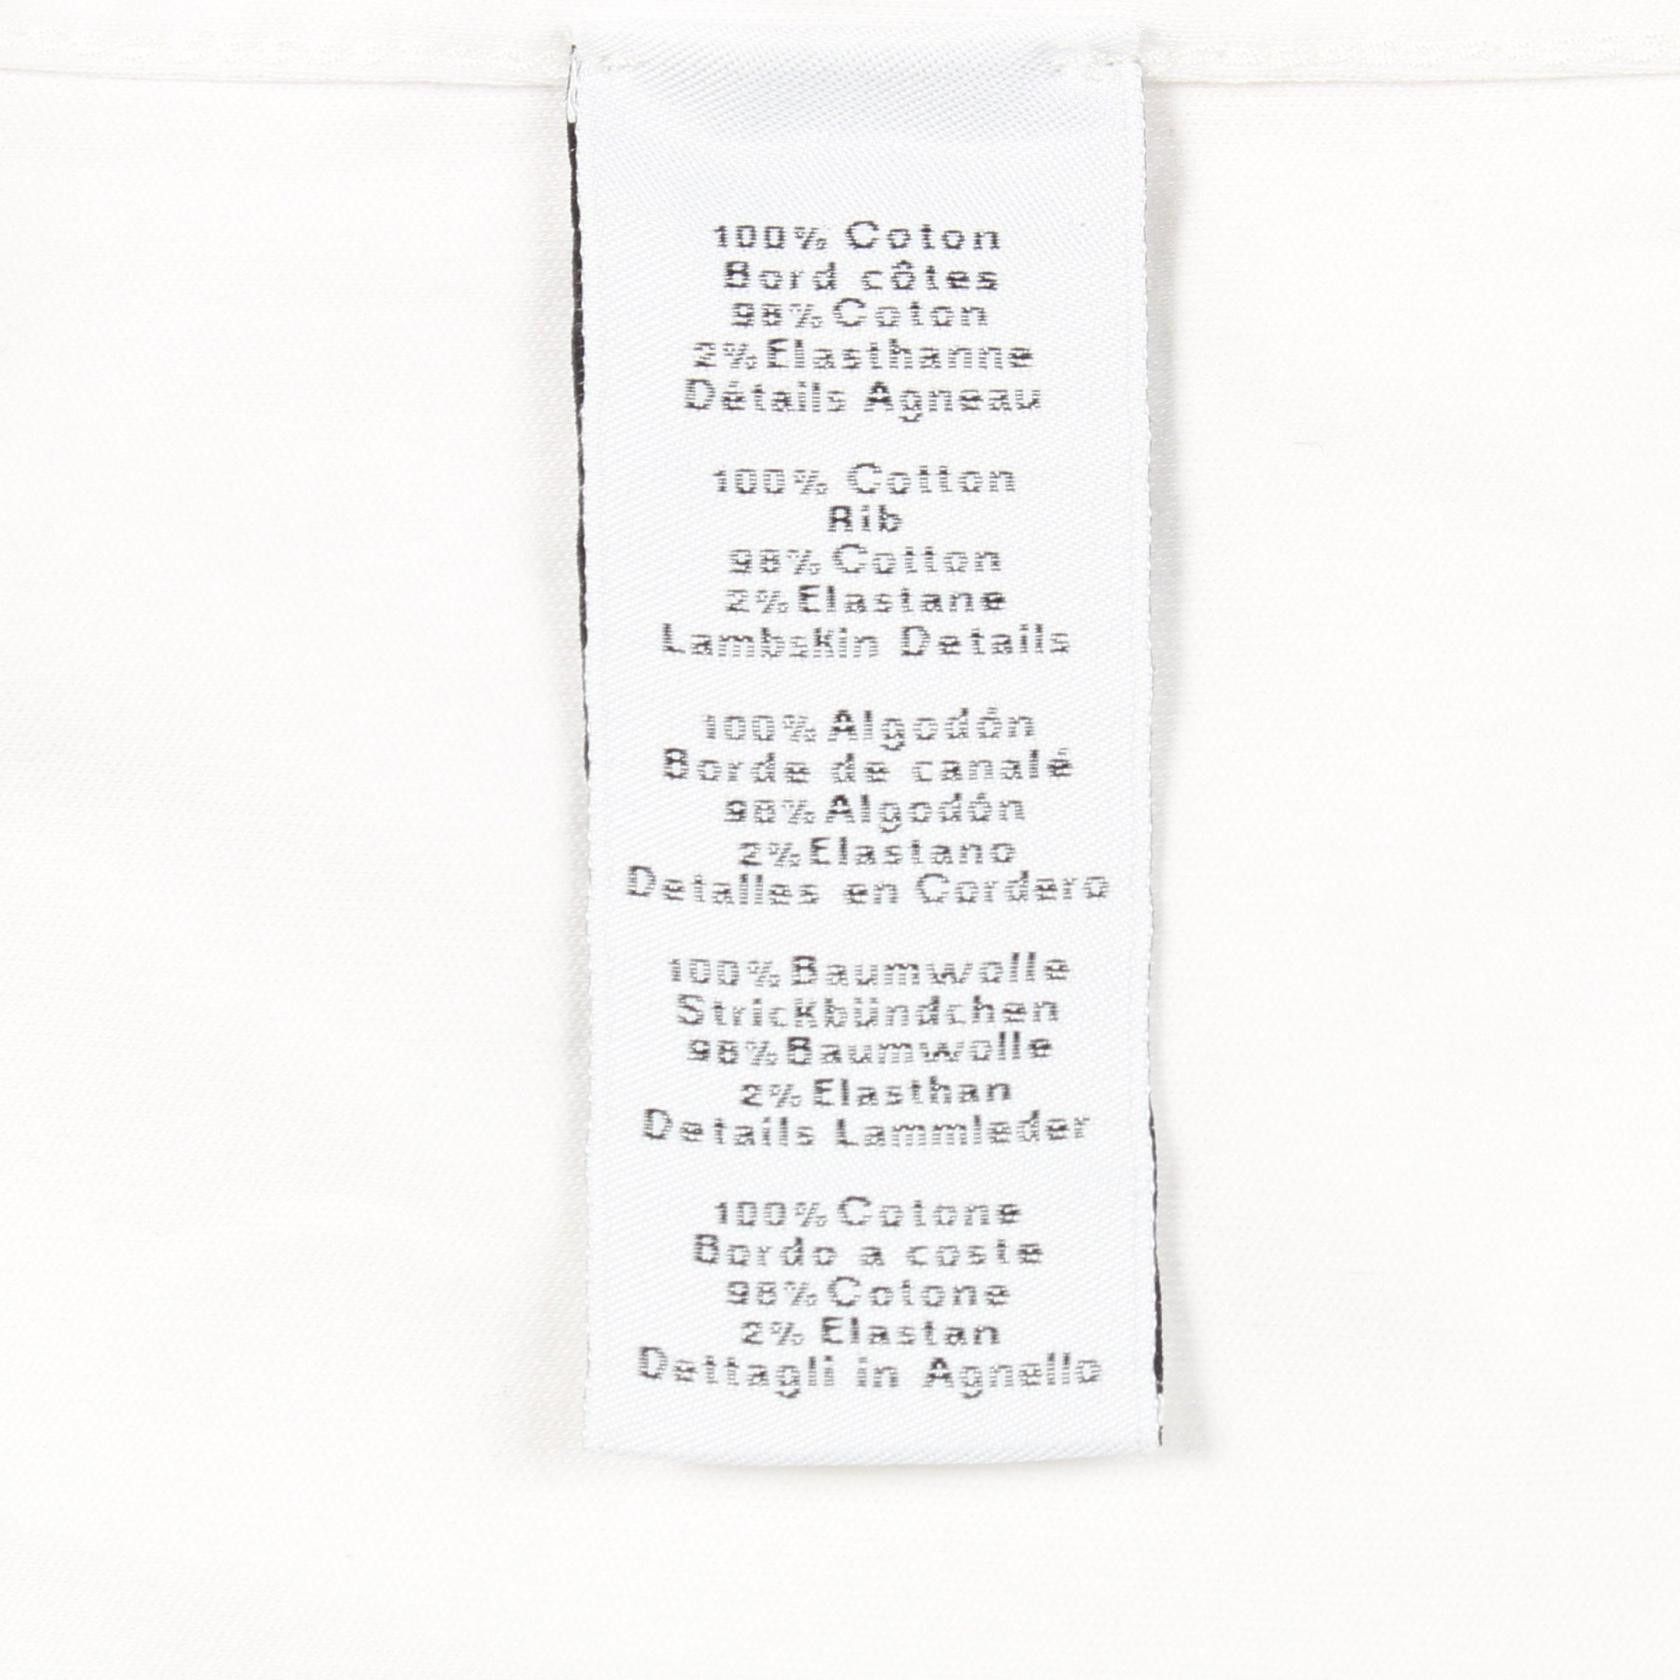 100% Coton
Bord côtes
98% Coton
2% Elasthanne
Détails Agneau
100% Cotton
Rib
98% Cotton
2% Elastane
Lambskin Details
100% Algodón
Borde de canalé
98% Algodón
2% Elastano
Detalles en Cordero
100% Baumwolle
Strickbündchen
98% Baumwolle
2% Elasthan
Details Lammleder
100% Cotone
Bordo a coste
98% Cotone
2% Elastan
Dettagli in Agnello